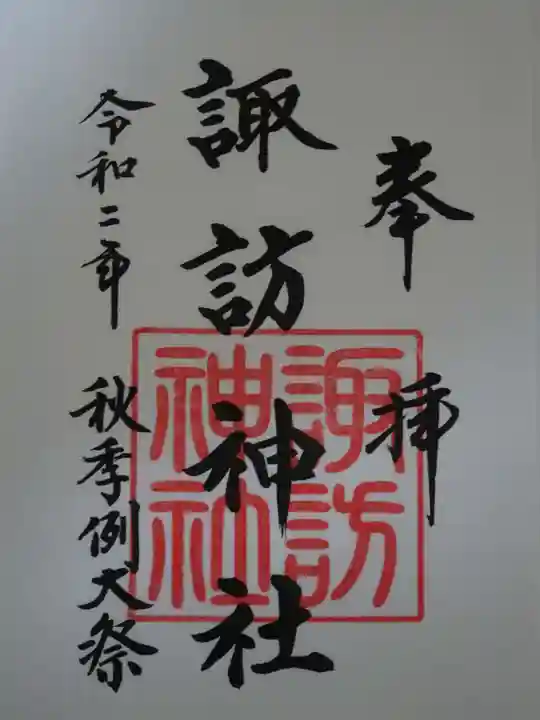 奉拝
諏訪神社
令和二年 秋季例大祭
諏訪神社